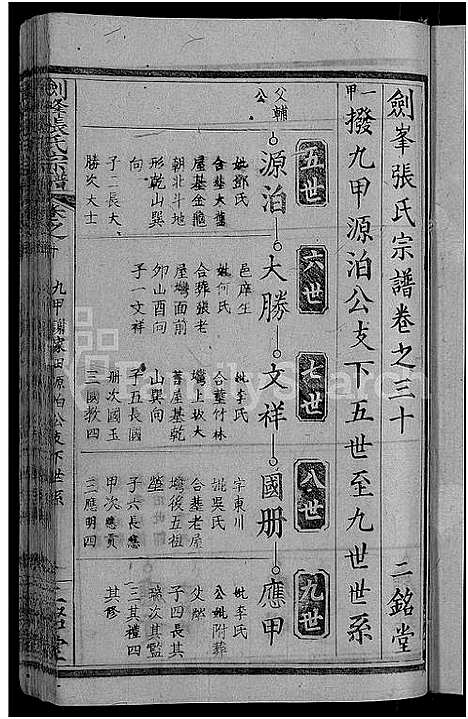 劍峯張氏宗譜卷之三十
二銘堂
一甲
撥九甲源泊公支下五世至九世世系
五世
六世
七世
八世
九世
父輔公
源泊
大勝
文祥
國册
應甲
妣鄧氏
合塟大舊
屋基金龜
朝北斗地
形乾山巽
子二長大
勝次大士
邑庠生
妣何氏
合葬張老
屋塆面前
卯山酉向
子一文祥
妣李氏
合塟付林
塆上坂大
舊屋基乾
山巽向
子五長國
册次國玉
三國救四
字東川
妣吳氏
合基老屋
塆後五祖
塋
子六長應
甲次應貢
三應明四
妣李氏
公妣附葬
父塋
子四長其
瑞次其監
三其禮四
其修
劍峯張氏宗譜
卷之三十
九甲謝家田源泊公支下世系
二銘堂
FamilySearch